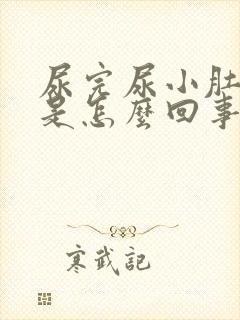 尿完尿小肚
是怎麼回事
寒武記